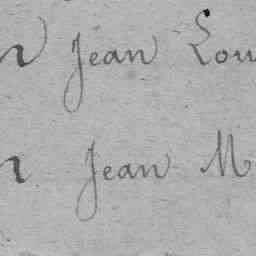 n Jean Lou
n Jean M